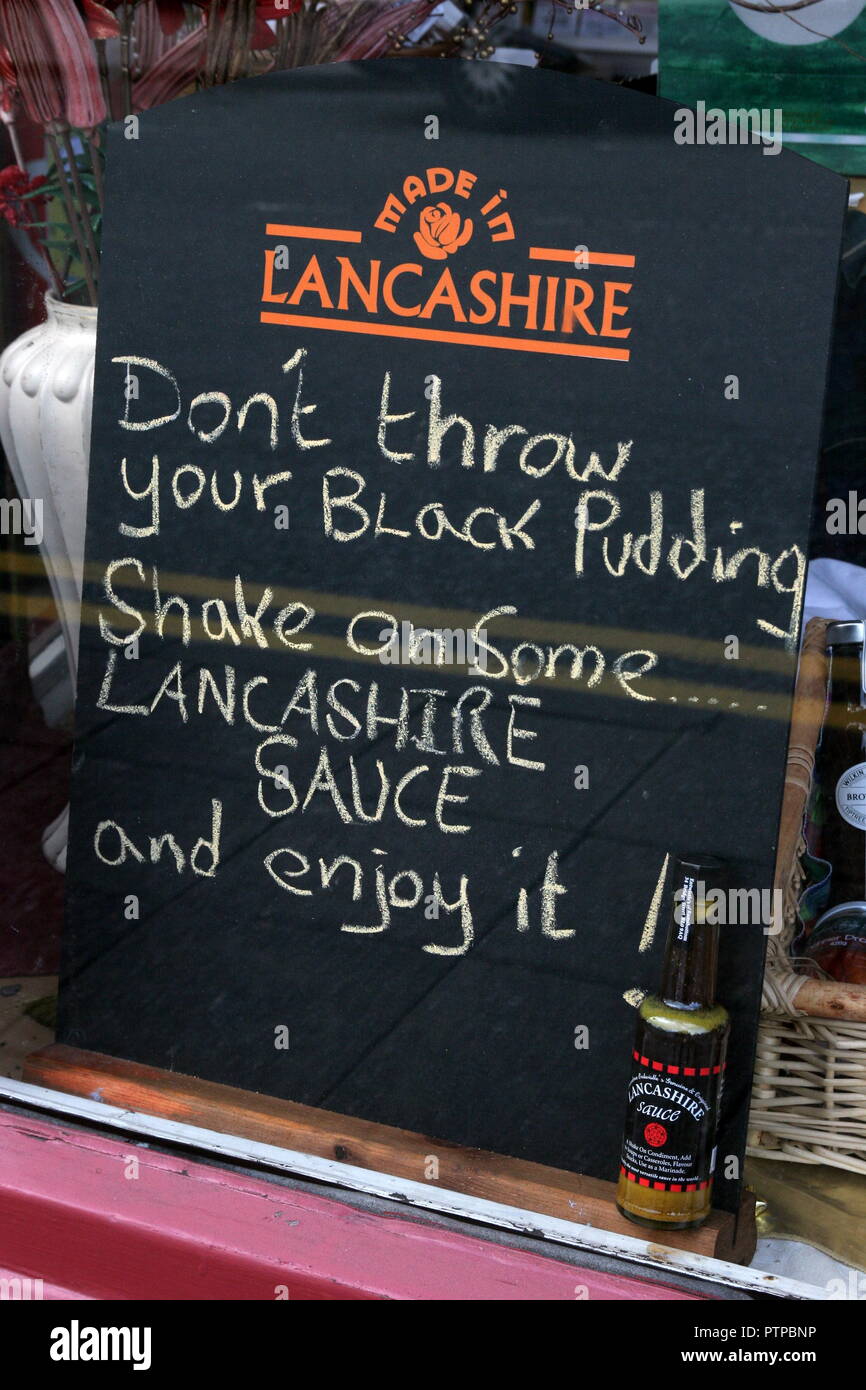 MADE in
LANCASHIRE
Don't throw
your BLack Pudding
Shake on Some......
LANCASHIRE
SAUCE
and enjoy it !
LANCASHIRE
sauce
A Shake On Condiment, Add
Use as a Marinade.
WILKIN
BRO
TIPTREE
alamy
Image ID: PTPBNP
www.alamy.com